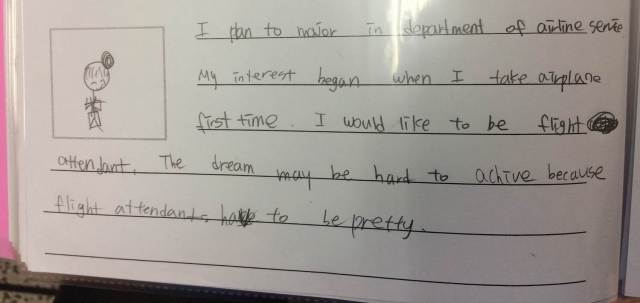 I plan to major in department of airline servie
My interest began when I take airplane
first time. I would like to be flight
attendant. The dream may be hard to achive because
flight attendants have to be pretty.